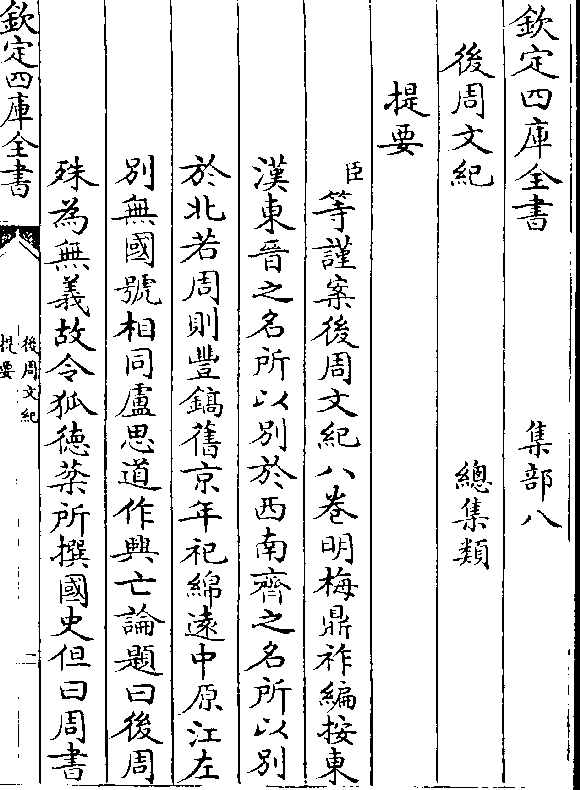 欽定四庫全書　集部八
後周文紀　總集類
提要
臣等謹案後周文紀八卷明梅鼎祚編按東
漢東晉之名所以別於西南齊之名所以別
於北若周則豐鎬舊京年祀綿遠中原江左
別無國號相同盧思道作興亡論題曰後周
殊為無義故令狐德棻所撰國史但曰周書
欽定四庫全書
後周文紀
提要